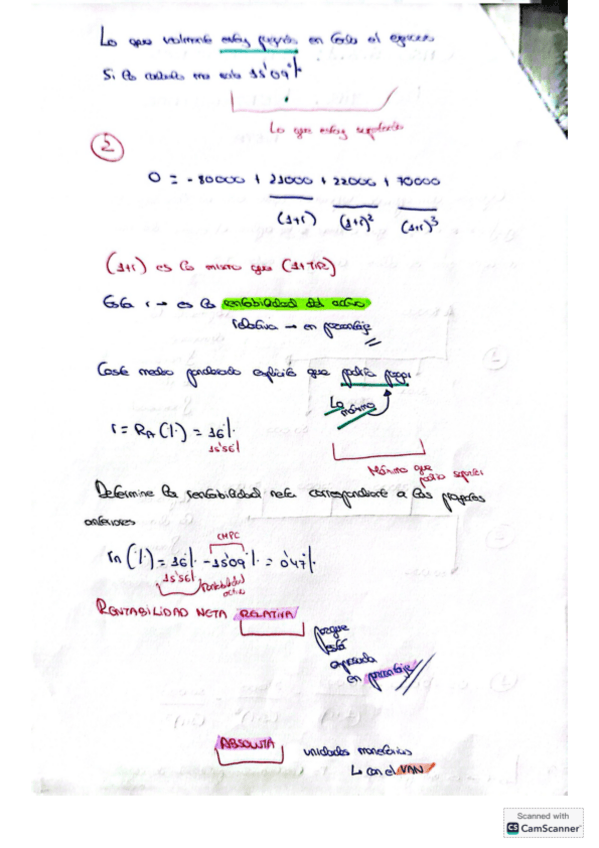 Lo que realmente estoy pagando en todo el ejercicio
Si lo calculo me sale 15'09%
Lo que estoy soportando
2
0 = -80000 + 21000 + 22000 + 70000
(1+r) (1+r)² (1+r)³
(1+r) es lo mismo que (1+TIR)
Esta r → es la rentabilidad del activo
relativa → en porcentaje
Coste medio ponderado explicité que podría pagar
Lo máximo
r = RA (%) = 16%
15'56%
Máximo que podría soportar
Determine la rentabilidad neta correspondiente a los proyectos
anteriores
CMPC
rn (%) = 16% - 15'09% = 0'47%
15'56% Rentabilidad activo
RENTABILIDAD NETA RELATIVA
porque
está
expresada
en porcentaje
ABSOLUTA unidades monetarias
↳ con el VAN
Scanned with
CS CamScanner